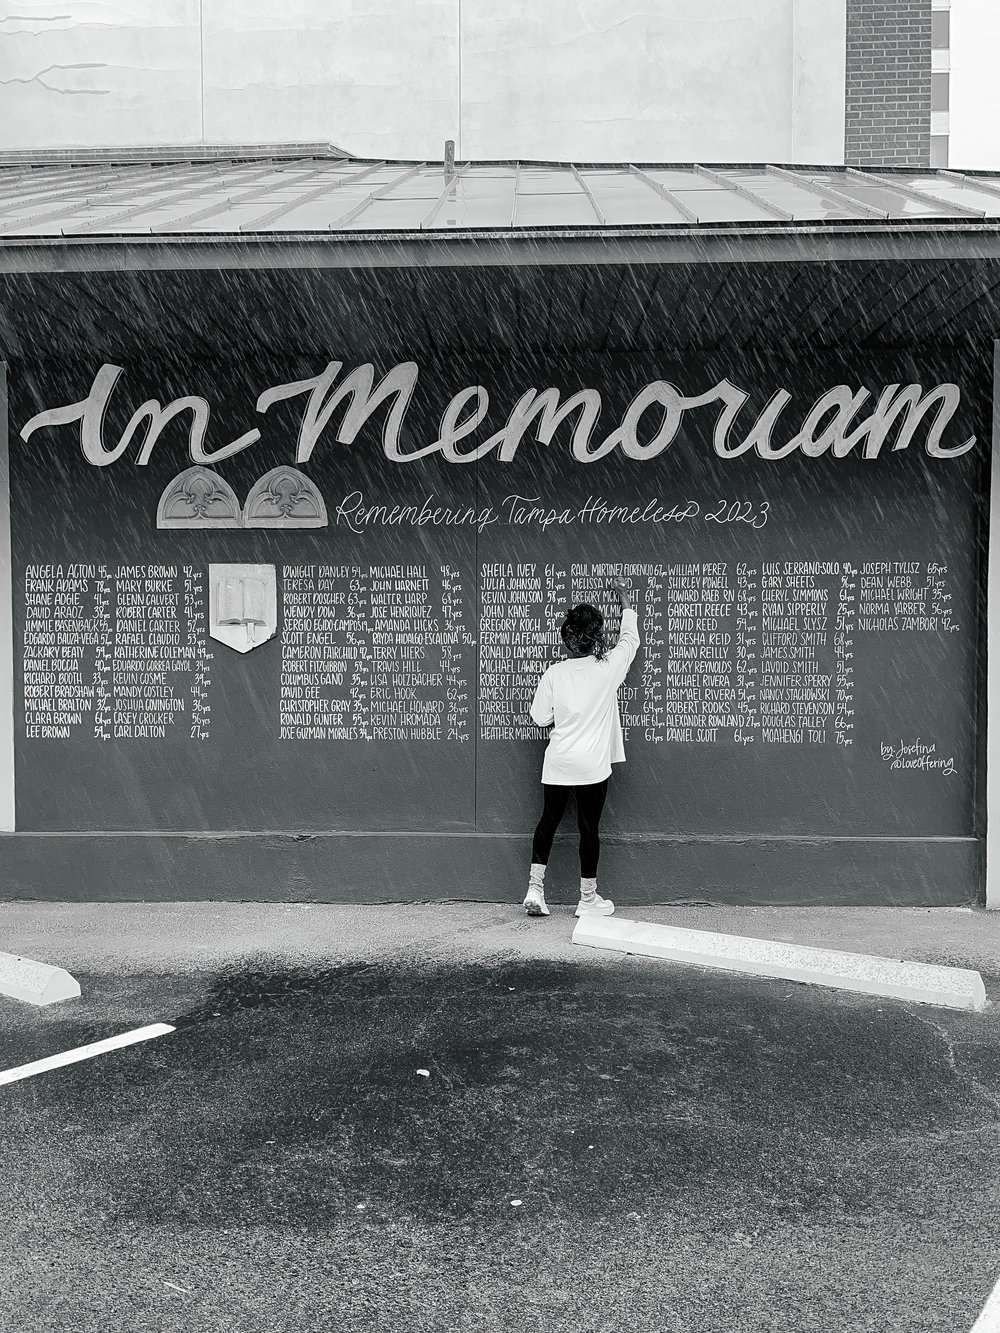 In Memoriam
Remembering Tampa Homeless 2023
ANGELA ACTON 45yrs
FRANK ADAMS 78yrs
SHANE ADGIE 41yrs
DAVID ARAOZ 38yrs
JIMMIE BASENBACK 55yrs
EDGARDO BAUZA-VEGA 57yrs
ZACKARY BEATY
DANIEL BOCCIA 40yrs
RICHARD BOOTH 33yrs
ROBERT BRADSHAW
MICHAEL BRALTON 37yrs
CLARA BROWN 64yrs
LEE BROWN
JAMES BROWN 42yrs
MARY BURKE 51yrs
GLENN CALVERT 53yrs
ROBERT CARTER 41yrs
DANIEL CARTER 52yrs
RAFAEL CLAUDIO 53yrs
KATHERINE COLEMAN 49yrs
EDUARDO CORREA GAYOL
KEVIN COSME 39yrs
MANDY COSTLEY 44yrs
JOSHUA COVINGTON 36yrs
CASEY CROCKER 56yrs
CARL DALTON 27yrs
DWIGHT DANLEY
TERESA DAY 63yrs
ROBERT DOSCHER 63yrs
WENDY DOW 36yrs
SERGIO EGIDO CAMPOS
SCOTT ENGEL 56yrs
CAMERON FAIRCHILD 42yrs
ROBERT FITZGIBBON 58yrs
COLUMBUS GANO 35yrs
DAVID GEE 42yrs
CHRISTOPHER GRAY 35yrs
RONALD GUNTER 55yrs
JOSE GUZMAN MORALES
MICHAEL HALL 48yrs
JOHN HARNETT 46yrs
WALTER HARP 63yrs
JOSE HENRIQUEZ 47yrs
AMANDA HICKS 36yrs
RAYDA HIDALGO ESCALONA 50yrs
TERRY HIERS 58yrs
TRAVIS HILL 44yrs
LISA HOLZBACHER 44yrs
ERIC HOOK 62yrs
MICHAEL HOWARD 36yrs
KEVIN HROMADA 49yrs
PRESTON HUBBLE 24yrs
SHEILA IVEY 61yrs
JULIA JOHNSON 51yrs
KEVIN JOHNSON 58yrs
JOHN KANE 61yrs
GREGORY KOCH 58yrs
FERMIN LA FE MANTILLA
RONALD LAMPART 61yrs
MICHAEL LAWRENCE
ROBERT
JAMES LIPSCOMB
DARRELL
THOMAS
HEATHER
RAUL MARTINEZ FLORENCIO 67yrs
MELISSA 50yrs
GREGORY 64yrs
WILLIAM PEREZ 62yrs
SHIRLEY POWELL 43yrs
HOWARD RAEB RN 68yrs
GARRETT REECE 43yrs
DAVID REED 54yrs
MIRESHA REID 31yrs
SHAWN REILLY 30yrs
ROCKY REYNOLDS 62yrs
MICHAEL RIVERA 31yrs
ABIMAEL RIVERA 51yrs
ROBERT ROOKS 45yrs
ALEXANDER ROWLAND 27yrs
DANIEL SCOTT 61yrs
LUIS SERRANO-SOLO 40yrs
GARY SHEETS 56yrs
CHERYL SIMMONS 61yrs
RYAN SIPPERLY 25yrs
MICHAEL SLYSZ 51yrs
CLIFFORD SMITH 68yrs
JAMES SMITH 44yrs
LAVOID SMITH 51yrs
JENNIFER SPERRY 55yrs
NANCY STACHOWSKI 70yrs
RICHARD STEVENSON 54yrs
DOUGLAS TALLEY 66yrs
MOAHENGI TOLI 75yrs
JOSEPH TYLISZ 68yrs
DEAN WEBB 51yrs
MICHAEL WRIGHT 35yrs
NORMA YARBER 56yrs
NICHOLAS ZAMBORI 42yrs
by: Josefina
@loveoffering